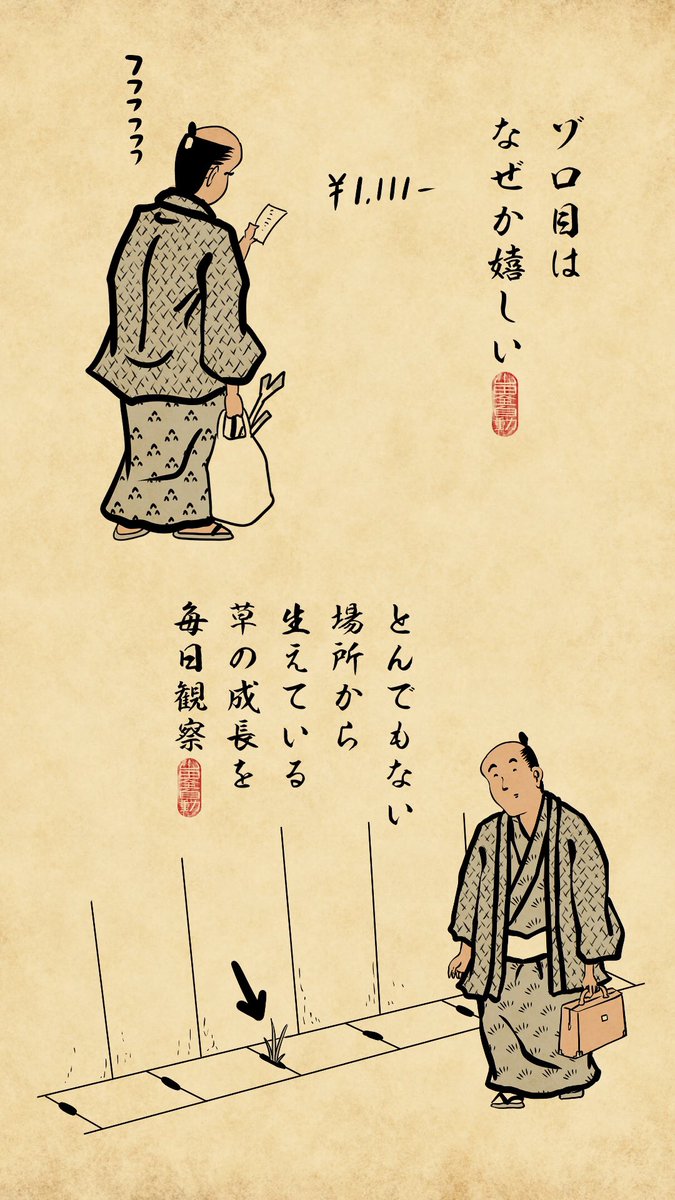 ゾロ目は
なぜか嬉しい
¥1,111-
フフフフフフ
とんでもない
場所から
生えている
草の成長を
毎日観察